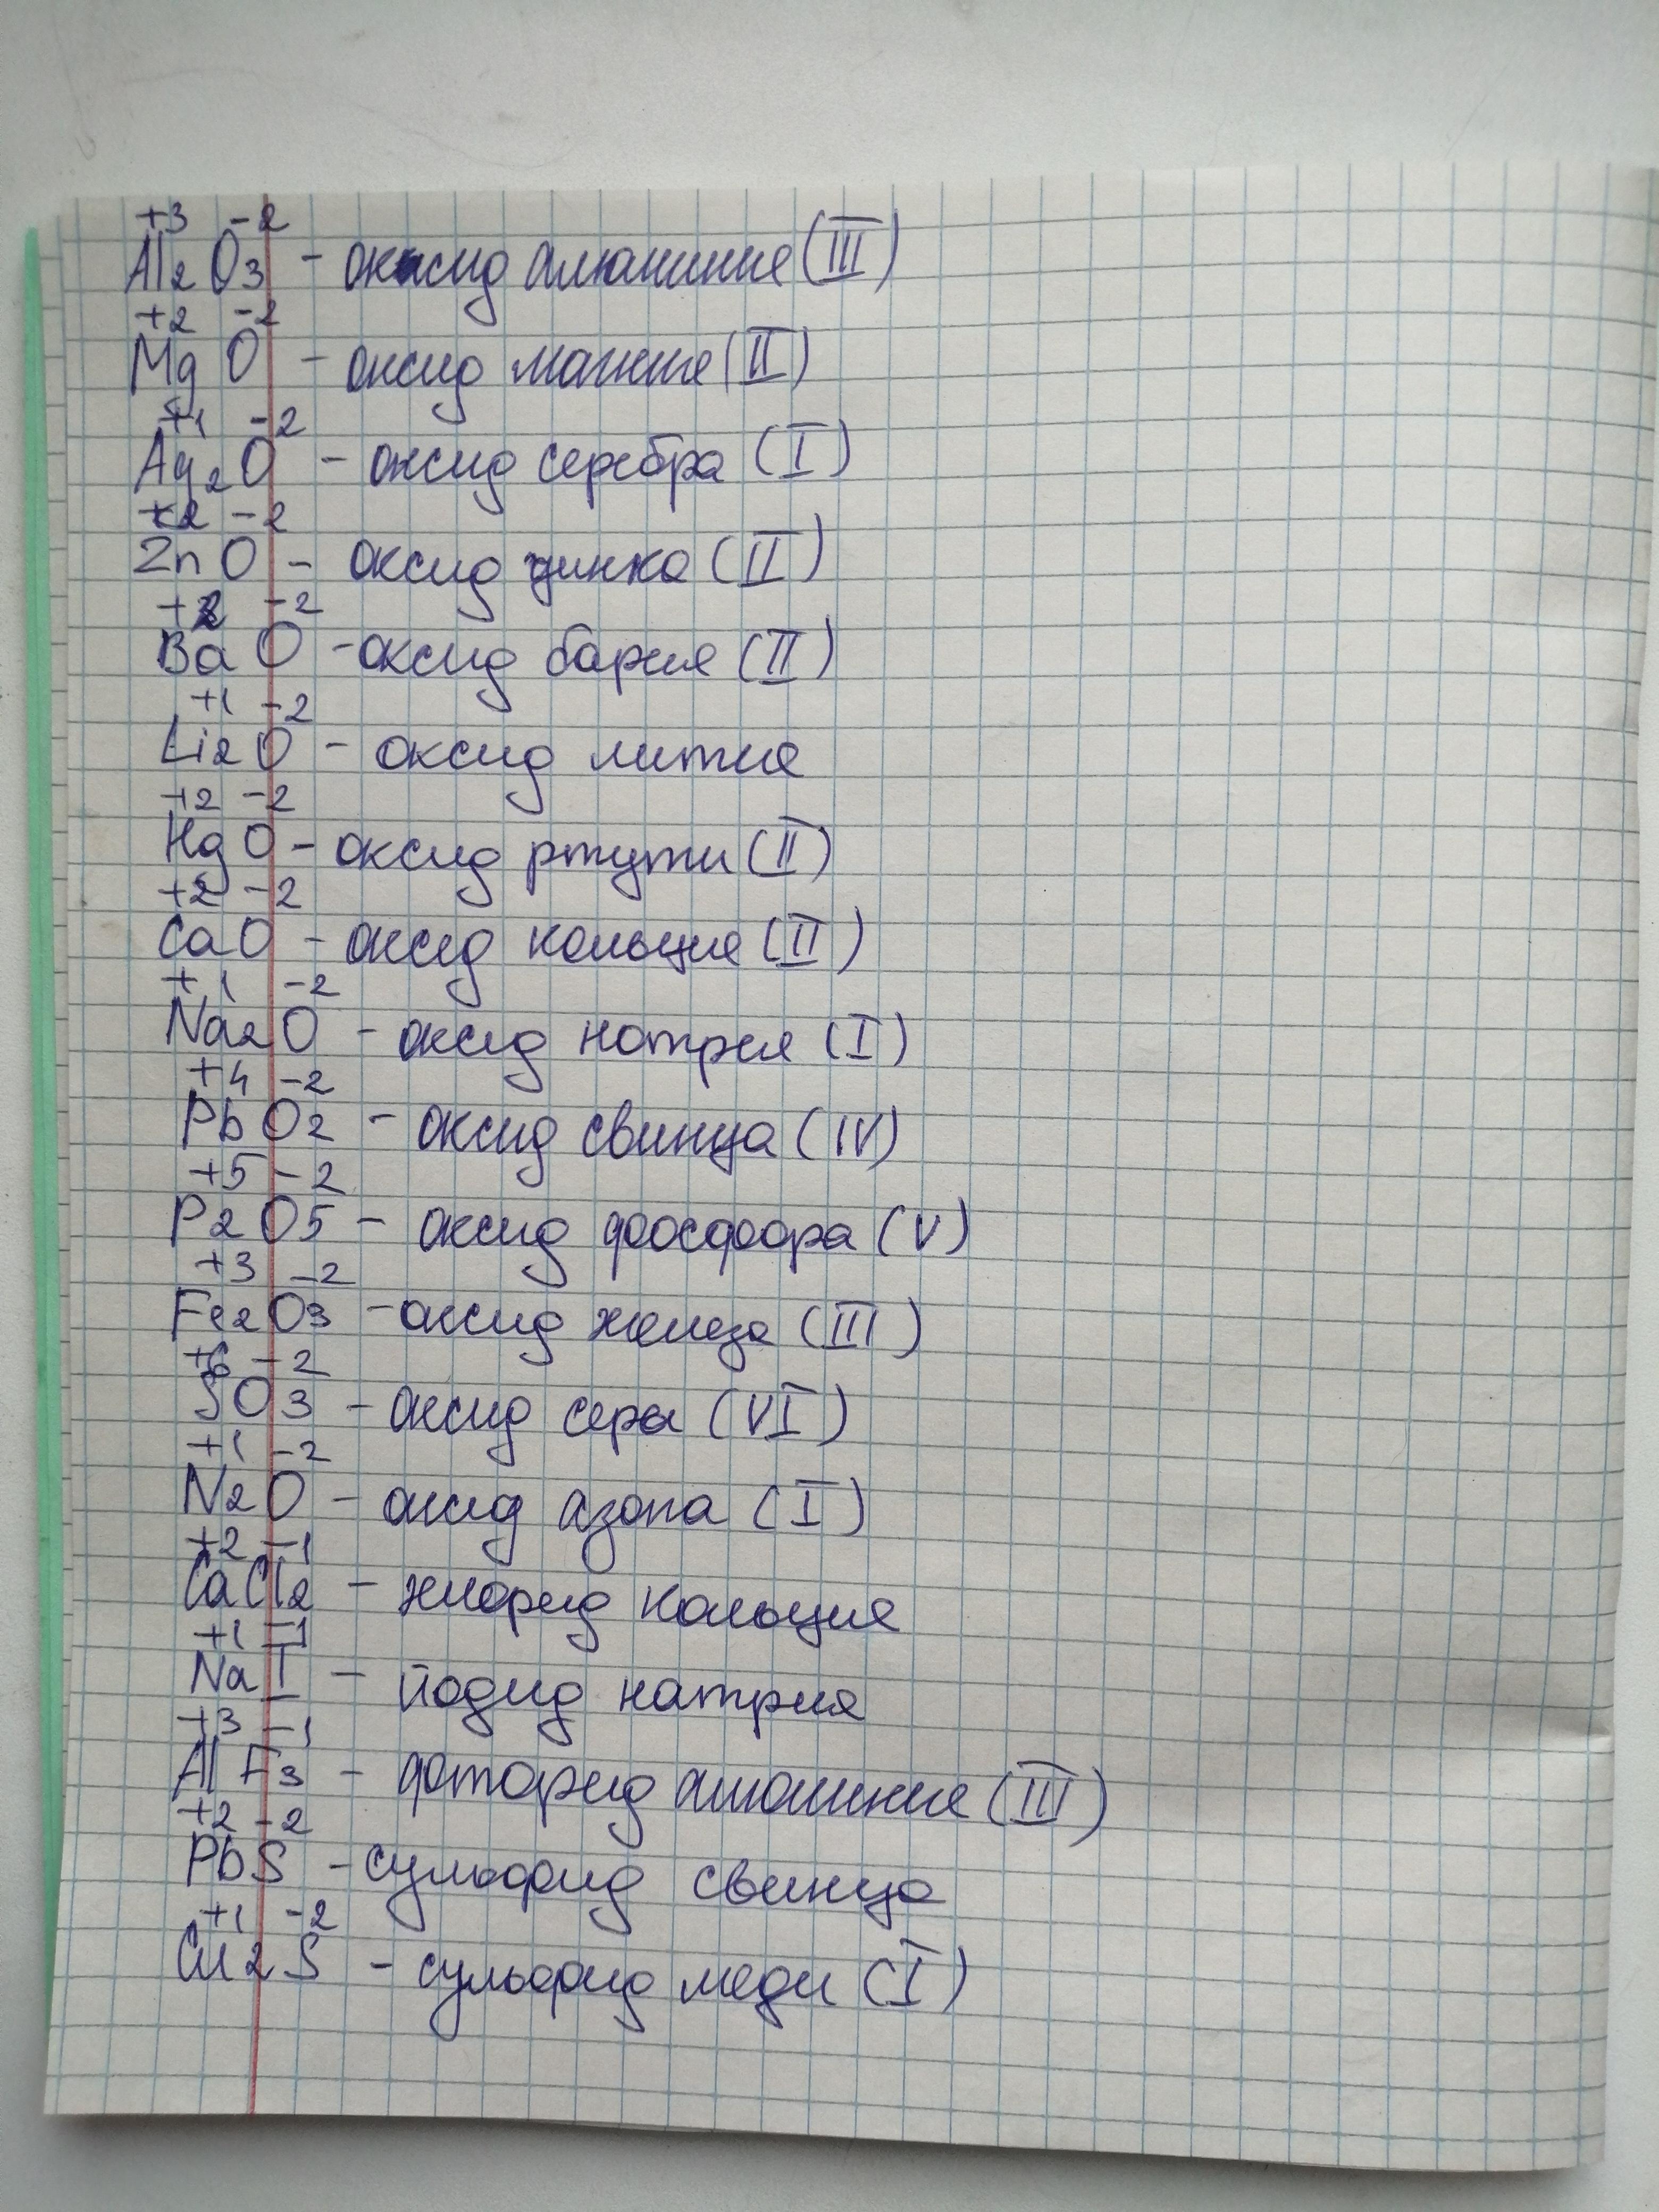 +3 -2
Al2O3 - оксид алюминия (III)
+2 -2
MgO - оксид магния (II)
+1 -2
Ag2O - оксид серебра (I)
+2 -2
ZnO - оксид цинка (II)
+2 -2
BaO - оксид бария (II)
+1 -2
Li2O - оксид лития
+2 -2
HgO - оксид ртути (II)
+2 -2
CaO - оксид кальция (II)
+1 -2
Na2O - оксид натрия (I)
+4 -2
PbO2 - оксид свинца (IV)
+5 -2
P2O5 - оксид фосфора (V)
+3 -2
Fe2O3 - оксид железа (III)
+6 -2
SO3 - оксид серы (VI)
+1 -2
N2O - оксид азота (I)
+2 -1
CaCl2 - хлорид кальция
+1 -1
NaI - йодид натрия
+3 -1
AlF3 - фторид алюминия (III)
+2 -2
PbS - сульфид свинца
+1 -2
Cu2S - сульфид меди (I)